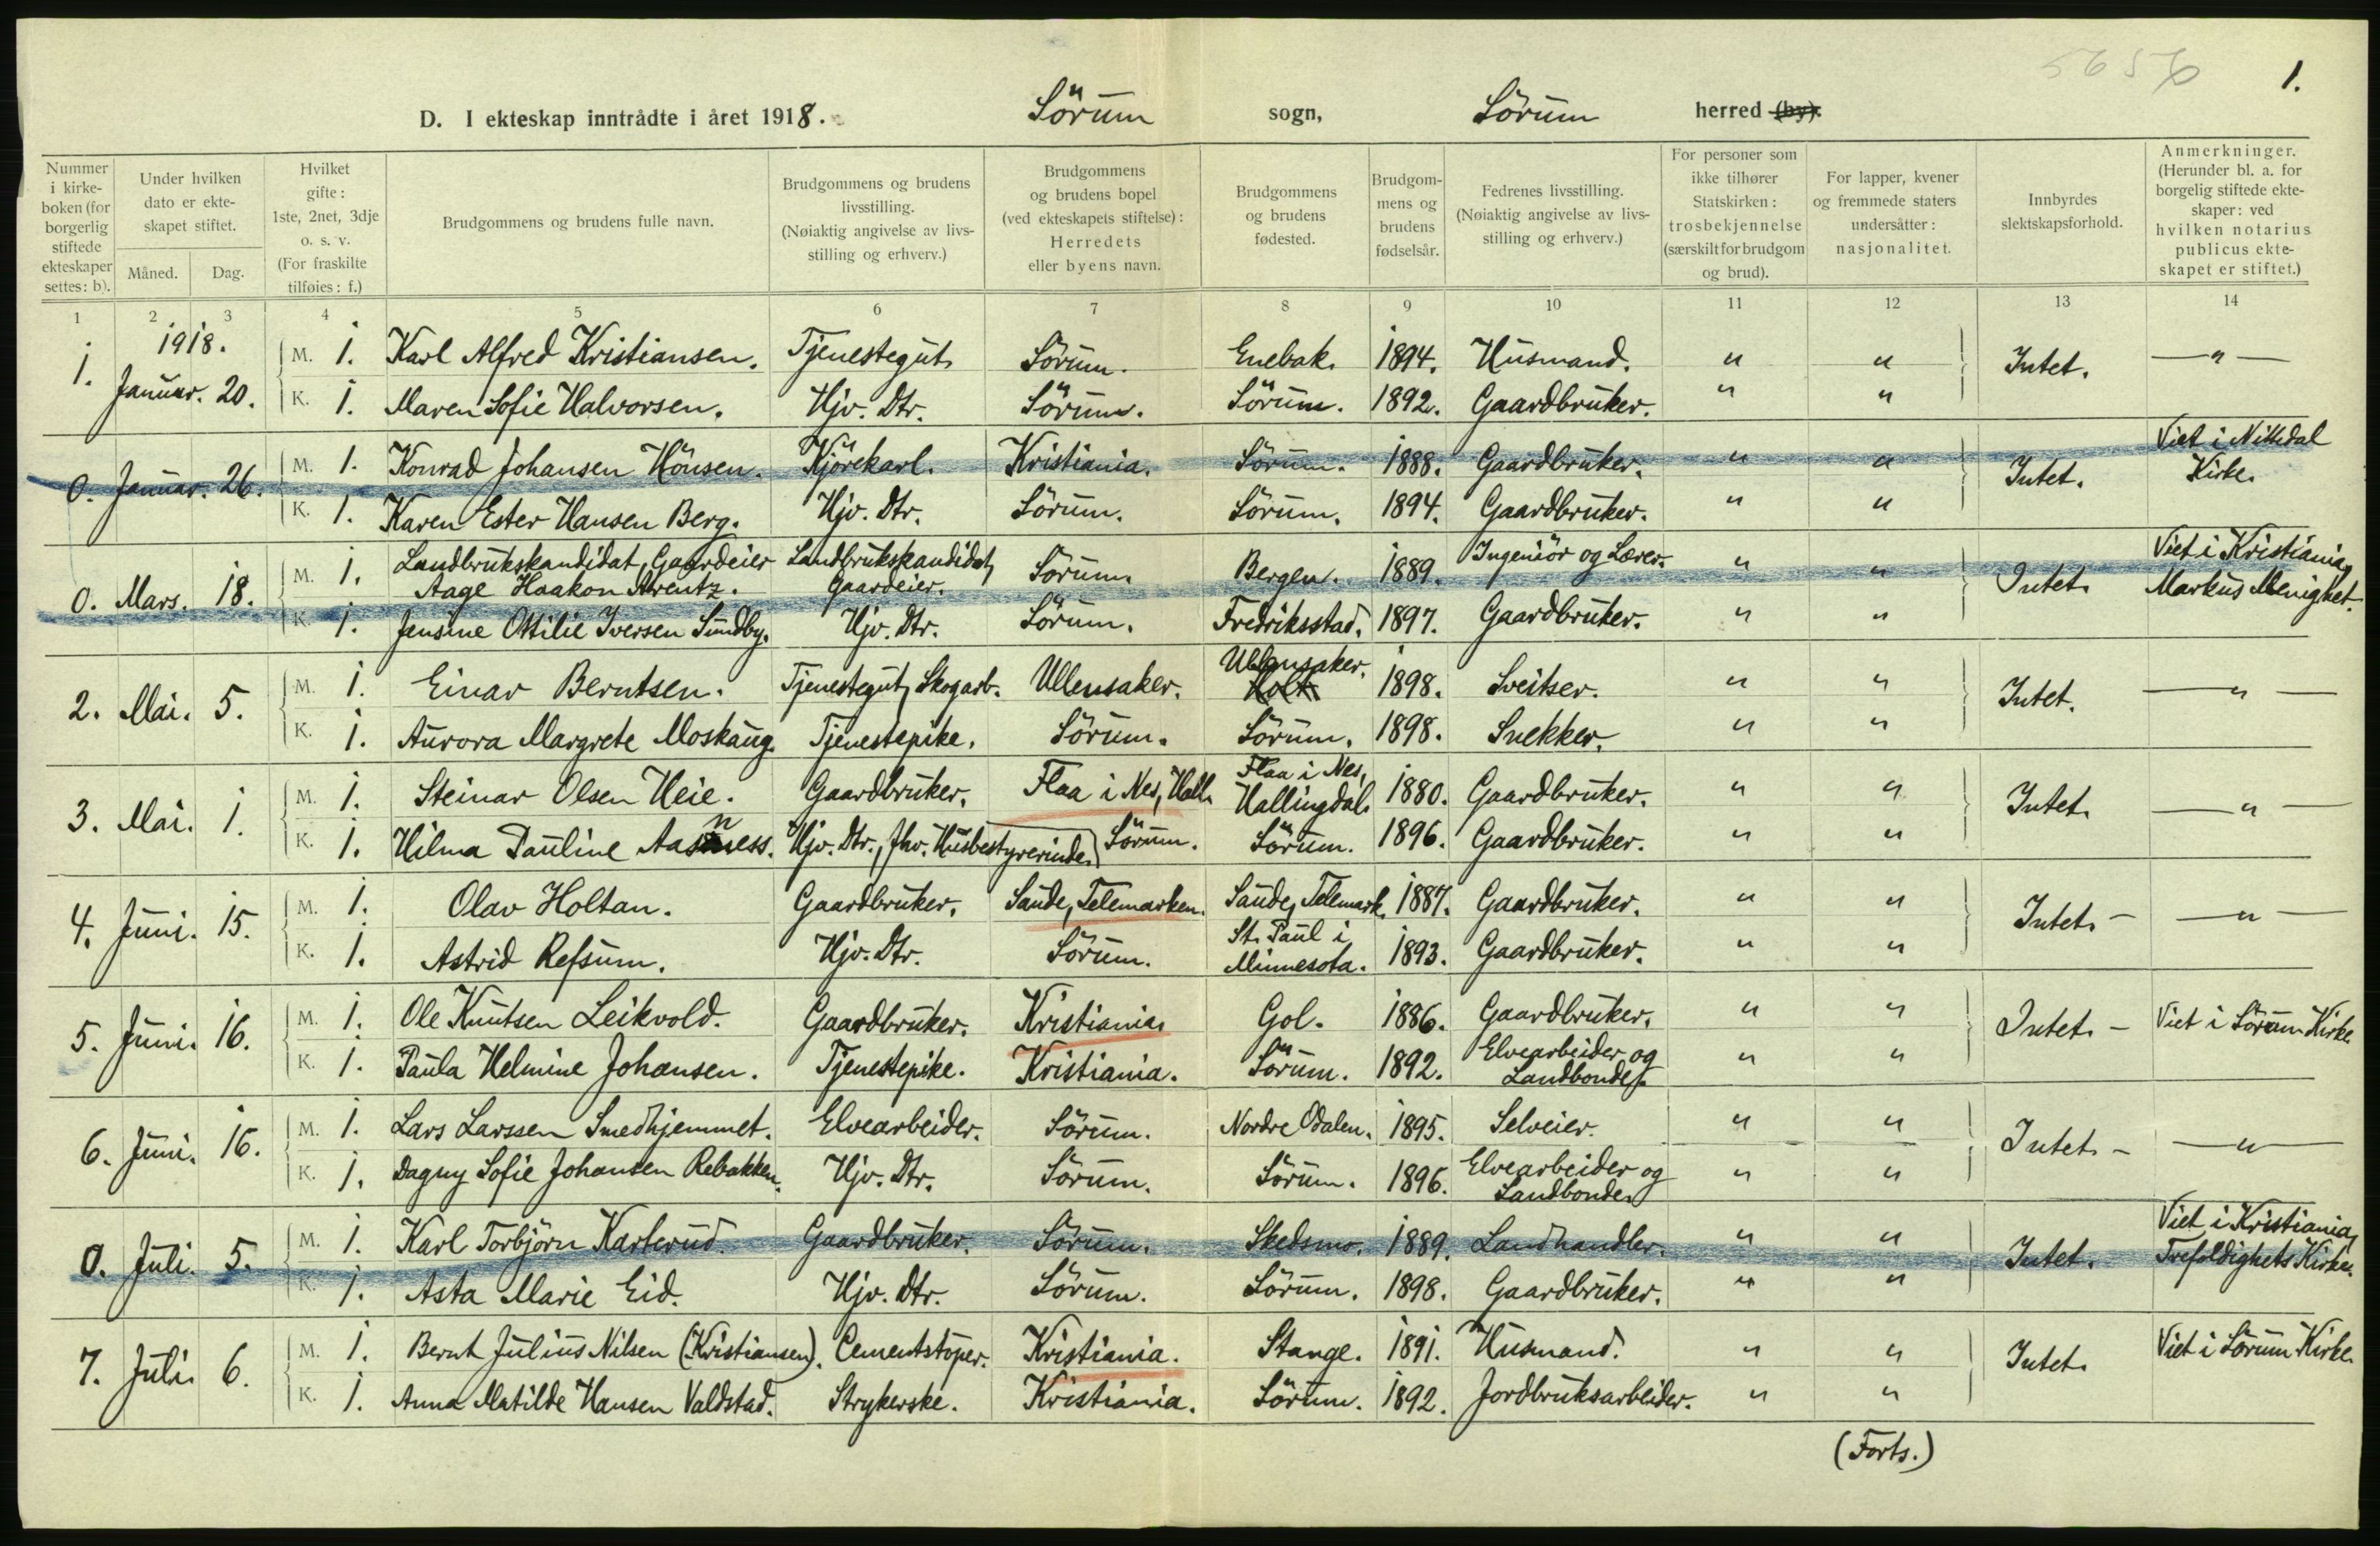 5656
1.
D. I ekteskap inntrådte i året 1918. Sörum sogn, Sörum herred (by).
Nummer i kirkeboken (for borgerlig stiftede ekteskaper settes: b).
Under hvilken dato er ekteskapet stiftet.
Måned. Dag.
Hvilket gifte: 1ste, 2net, 3dje o. s. v. (For fraskilte tilføies: f.)
Brudgommens og brudens fulle navn.
Brudgommens og brudens livsstilling. (Nøiaktig angivelse av livsstilling og erhverv.)
Brudgommens og brudens bopel (ved ekteskapets stiftelse): Herredets eller byens navn.
Brudgommens og brudens fødested.
Brudgommens og brudens fødselsår.
Fedrenes livsstilling. (Nøiaktig angivelse av livsstilling og erhverv.)
For personer som ikke tilhører Statskirken: trosbekjennelse (særskilt for brudgom og brud).
For lapper, kvener og fremmede staters undersåtter: nasjonalitet.
Innbyrdes slektskapsforhold.
Anmerkninger. (Herunder bl. a. for borgelig stiftede ekteskaper: ved hvilken notarius publicus ekteskapet er stiftet.)
1 2 3 4 5 6 7 8 9 10 11 12 13 14
1918.
1. Januar. 20. M. 1. Karl Alfred Kristiansen. Tjenestegut. Sörum. Enebak. 1894. Husmand. " " Intet. — " —
K. 1. Maren Sofie Halvorsen. Hjv. Dtr. Sörum. Sörum. 1892. Gaardbruker. " "
0. Januar. 26. M. 1. Konrad Johansen Hönsen. Kjörekarl. Kristiania. Sörum. 1888. Gaardbruker. " " Intet. Viet i Nittedal Kirke.
K. 1. Karen Ester Hansen Berg. Hjv. Dtr. Sörum. Sörum. 1894. Gaardbruker. " "
0. Mars. 18. M. 1. Landbrukskandidat, Gaardeier Aage Haakon Arentz. Landbrukskandidat, Gaardeier. Sörum. Bergen. 1889. Ingeniör og Lærer. " " Intet. Viet i Kristiania, Markus Menighet.
K. 1. Jensine Ottilie Iversen Sundby. Hjv. Dtr. Sörum. Fredriksstad. 1897. Gaardbruker. " "
2. Mai. 5. M. 1. Einar Berntsen. Tjenestegut, Skogarb. Ullensaker. Ullensaker. Holt 1898. Sveitser. " " Intet. — " —
K. 1. Aurora Margrete Moskaug. Tjenestepike. Sörum. Sörum. 1898. Snekker. " "
3. Mai. 1. M. 1. Steinar Olsen Heie. Gaardbruker. Flaa i Nes, Hall. Flaa i Nes, Hallingdal. 1880. Gaardbruker. " " Intet. — " —
K. 1. Hilma Pauline Aasness. Hjv. Dtr., fhv. Husbestyrerinde. Sörum. Sörum. 1896. Gaardbruker. " "
4. Juni. 15. M. 1. Olav Holtan. Gaardbruker. Saude, Telemarken. Saude, Telemark. 1887. Gaardbruker. " " Intet. — — " —
K. 1. Astrid Refsum. Hjv. Dtr. Sörum. St. Paul i Minnesota. 1893. Gaardbruker. " "
5. Juni. 16. M. 1. Ole Knutsen Leikvold. Gaardbruker. Kristiania. Gol. 1886. Gaardbruker. " " Intet. — Viet i Sörum Kirke
K. 1. Paula Helmine Johansen. Tjenestepike. Kristiania. Sörum. 1892. Elvearbeider og Landbonde. " "
6. Juni. 16. M. 1. Lars Larssen Smedhjemmet. Elvearbeider. Sörum. Nordre Odalen. 1895. Selveier. " " Intet. — — " —
K. 1. Dagny Sofie Johansen Rebakken. Hjv. Dtr. Sörum. Sörum. 1896. Elvearbeider og Landbonde. " "
0. Juli. 5. M. 1. Karl Torbjörn Karterud. Gaardbruker. Sörum. Skedsmo. 1889. Landhandler. " " Intet. Viet i Kristiania, Trefoldighets Kirke.
K. 1. Asta Marie Eid. Hjv. Dtr. Sörum. Sörum. 1898. Gaardbruker. " "
7. Juli. 6. M. 1. Bernt Julius Nilsen (Kristiansen). Cementstöper. Kristiania. Stange. 1891. Husmand. " " Intet. Viet i Sörum Kirke.
K. 1. Anna Matilde Hansen Valdstad. Strykerske. Kristiania. Sörum. 1892. Jordbruksarbeider. " "
(Forts.)